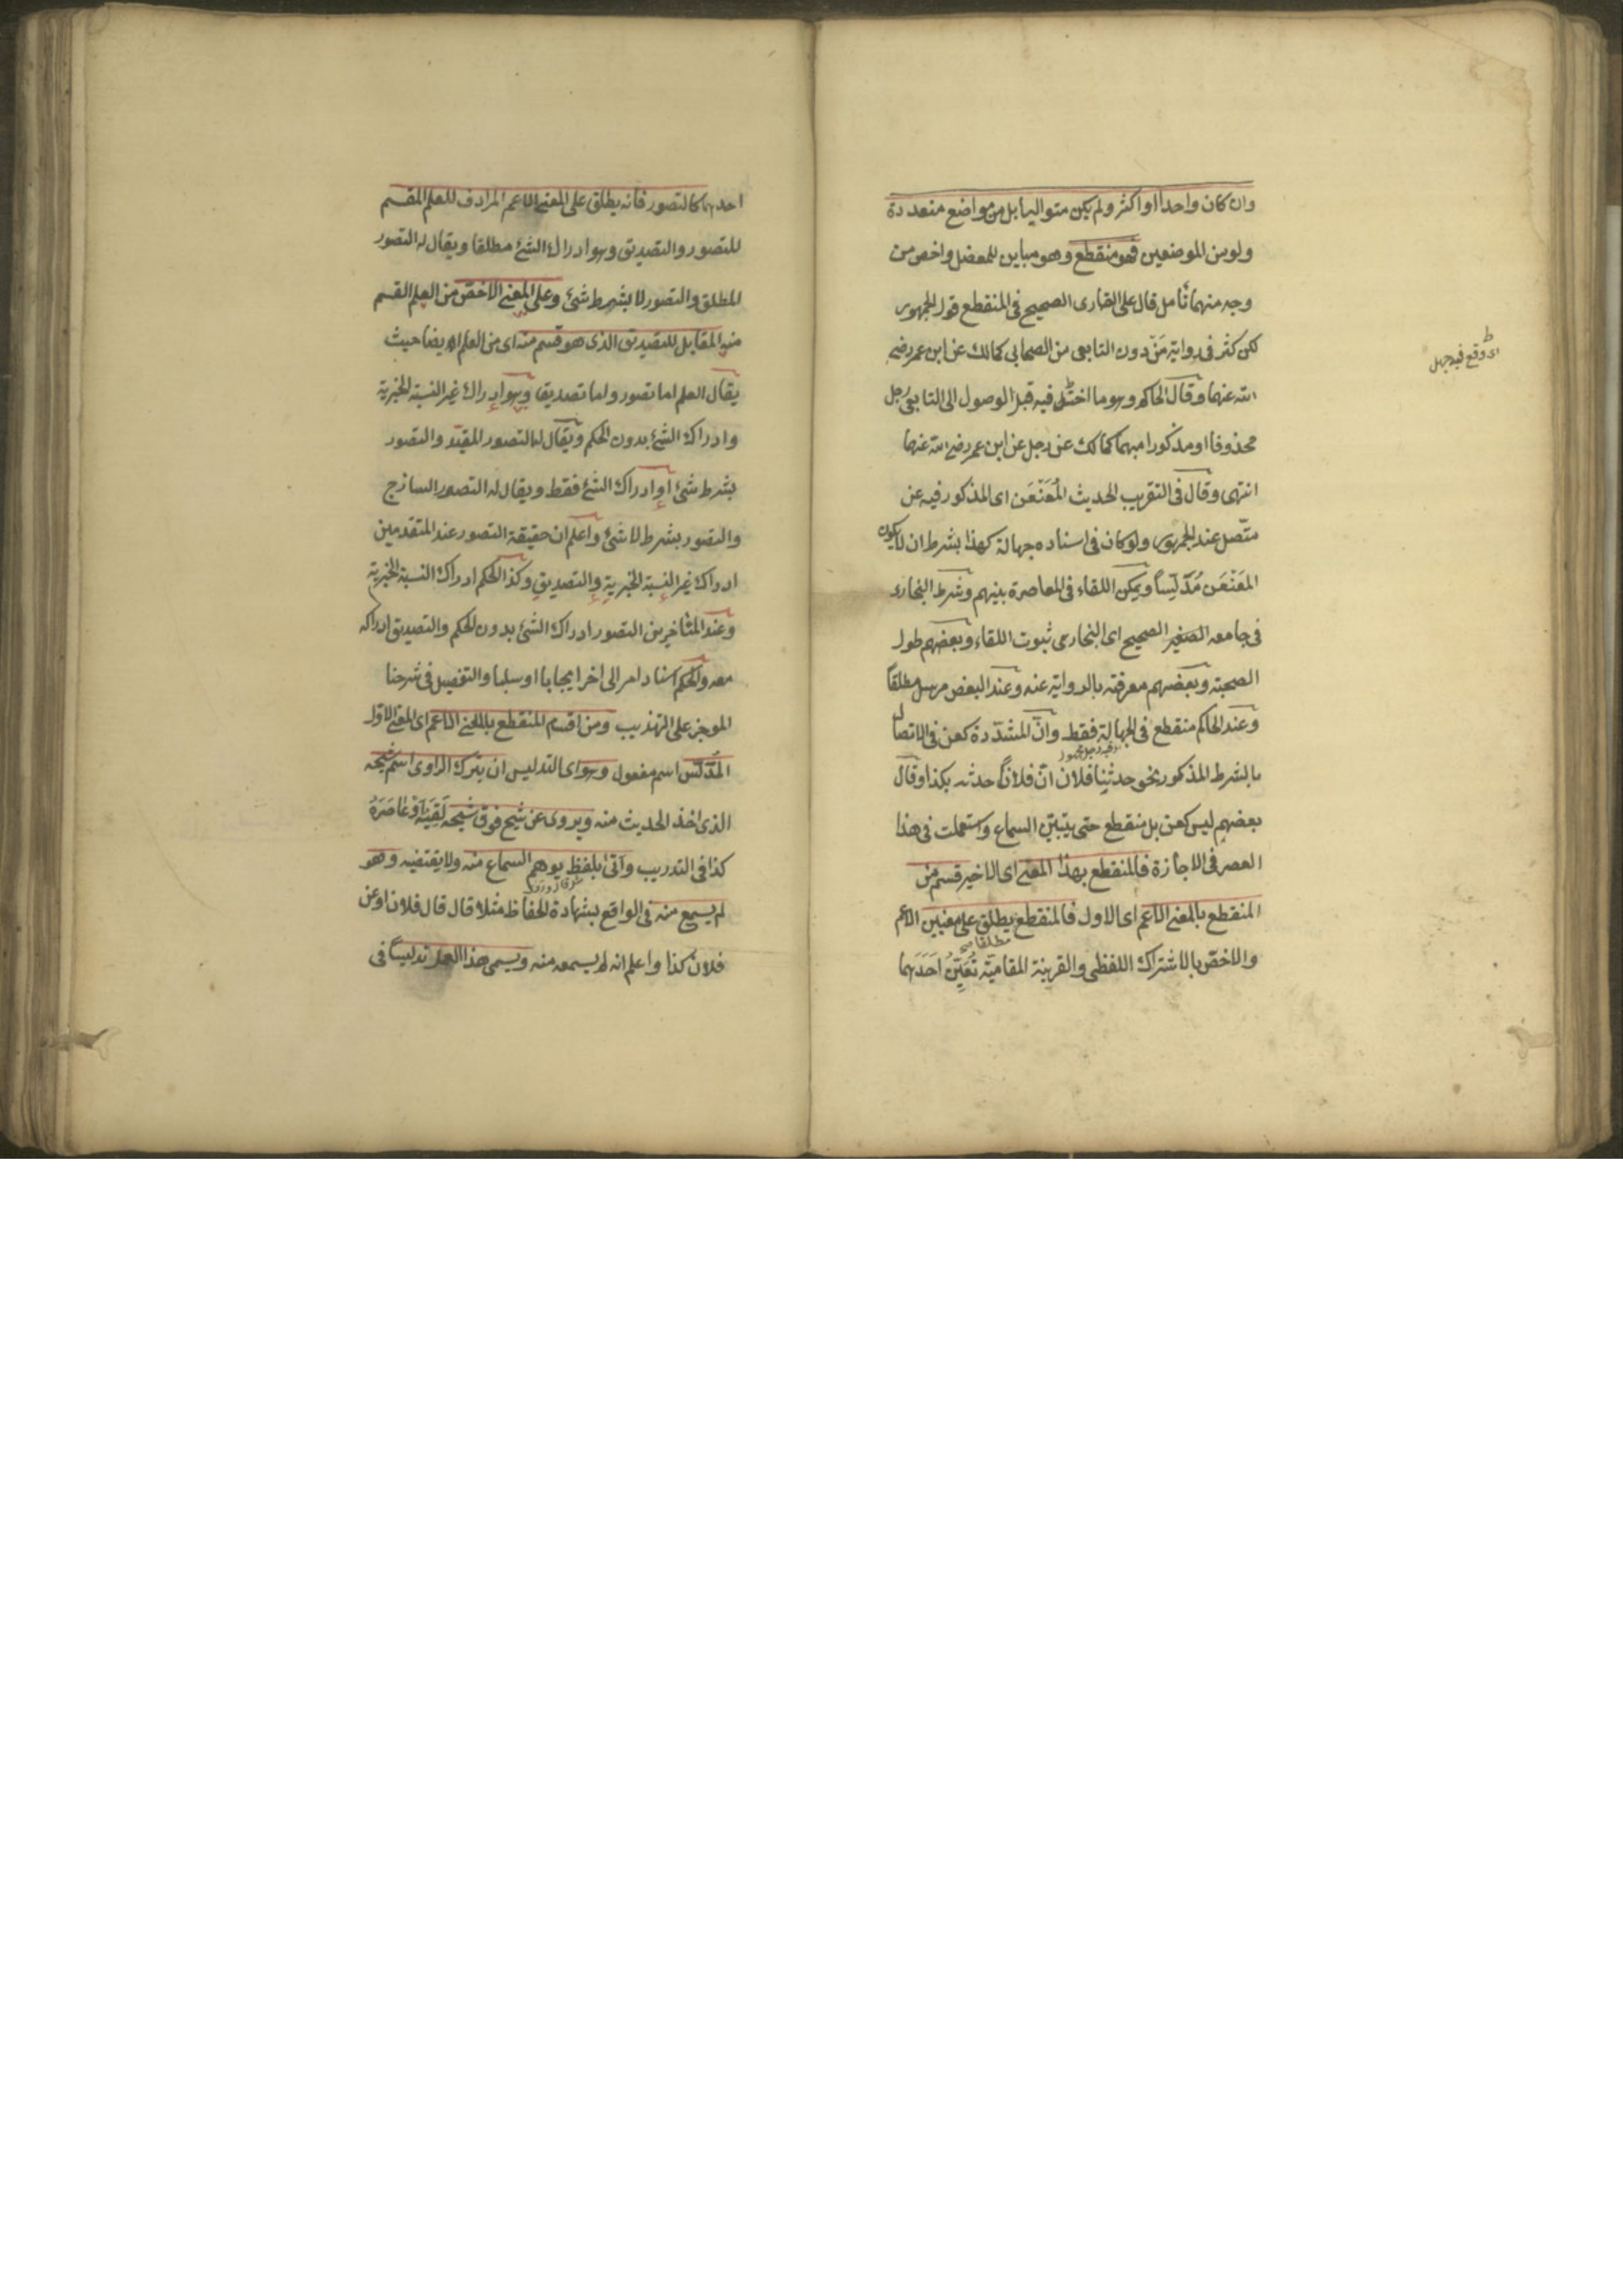 وان كان واحدا او اكثر ولم يكن متواليا بل من مواضع متعددة
ولو من الموضعين فهو منقطع وهو مباين للمعضل واخص من
وجه منهما تأمل قال على القارى الصحيح فى المنقطع قول الجمهور
لكن كثر فى رواية مَنْ دون التابعى من الصحابى كمالك عن ابن عمر رضى
الله عنهما وقال الحاكم وهو ما اختلّ فيه قبل الوصول الى التابعى رجل
محذوفا او مذكورا مبهما كمالك عن رجل عن ابن عمر رضى الله عنهما
انتهى وقال فى التقريب الحديث المُعَنْعَن اى المذكور فيه عن
متّصل عند الجمهور ولو كان فى اسناده جهالة كهذا بشرط ان لا يكون
المعَنْعَن مُدَلِّيساً ويمكن اللقاء فى المعاصرة بينهم وشرط البخارى
فى جامعه الصغير الصحيح اى البخارى ثبوت اللقاء وبعضهم طول
الصحبة وبعضهم معرفته بالرواية عنه وعند البعض مرسل مطلقاً
وعند الحاكم منقطع فى الجهالة فقط وانّ المشدّدة كعن فى الاتصال
بالشرط المذكور نحو حدثنا فلان انّ فلاناً حدثه بكذا وقال
بعضهم ليس كعن بل منقطع حتى يتبيّن السماع واستعملت فى هذا
العصر فى الاجازة فالمنقطع بهذا المعنى اى الاخير قسم من
المنقطع بالمعنى الاعم اى الاول فالمنقطع يطلق على معنيين الاعم
والاخصّ بالاشتراك اللفظى والقرينة المقاميّة تُعَيِّنُ اَحَدَهما
مطلقا صح
اى وقع فيه جهل
احدهما كالتصور فانه يطلق على المعنى الاعم المرادف للعلم المقسم
للتصور والتصديق وهو ادراك الشئ مطلقا ويقال له التصور
المطلق والتصور لا بشرط شئ وعلى المعنى الاخصّ من العلم القسم
منه المقابل للتصديق الذى هو قسم منه اى من العلم ايضا حيث
يقال العلم اما تصور واما تصديق وهو ادراك غير النسبة الخبرية
وادراك الشئ بدون الحكم ويقال له التصور المقيّد والتصور
بشرط شئ او ادراك الشئ فقط ويقال له التصور الساذج
والتصور بشرط لا شئ واعلم ان حقيقة التصور عند المتقدمين
ادراك غير النسبة الخبرية والتصديق وكذا الحكم ادراك النسبة الخبرية
وعند المتأخرين التصور ادراك الشئ بدون الحكم والتصديق ادراكه
معه والحكم اسناد امر الى اخر ايجابا او سلبا والتفصيل فى شرحنا
الموجز على التهذيب ومن اقسام المنقطع بالمعنى الاعم اى المعنى الاوّل
المُدَلَّس اسم مفعول وهو اى التدليس ان يترك الراوى اسم شيخه
الذى اخذ الحديث منه ويروى عن شيخ فوق شيخه لَقِيَهُ اَوْ عَاصَرَهُ
كذا فى التدريب وأتى بلفظ يوهم السماع منه ولا يقتضيه وهو
لم يسمع منه فى الواقع بشهادة الحفاظ مثلا قال قال فلان او عن
فلان كذا واعلم انه لم يسمعه منه ويسمى هذا العمل تدليساً فى